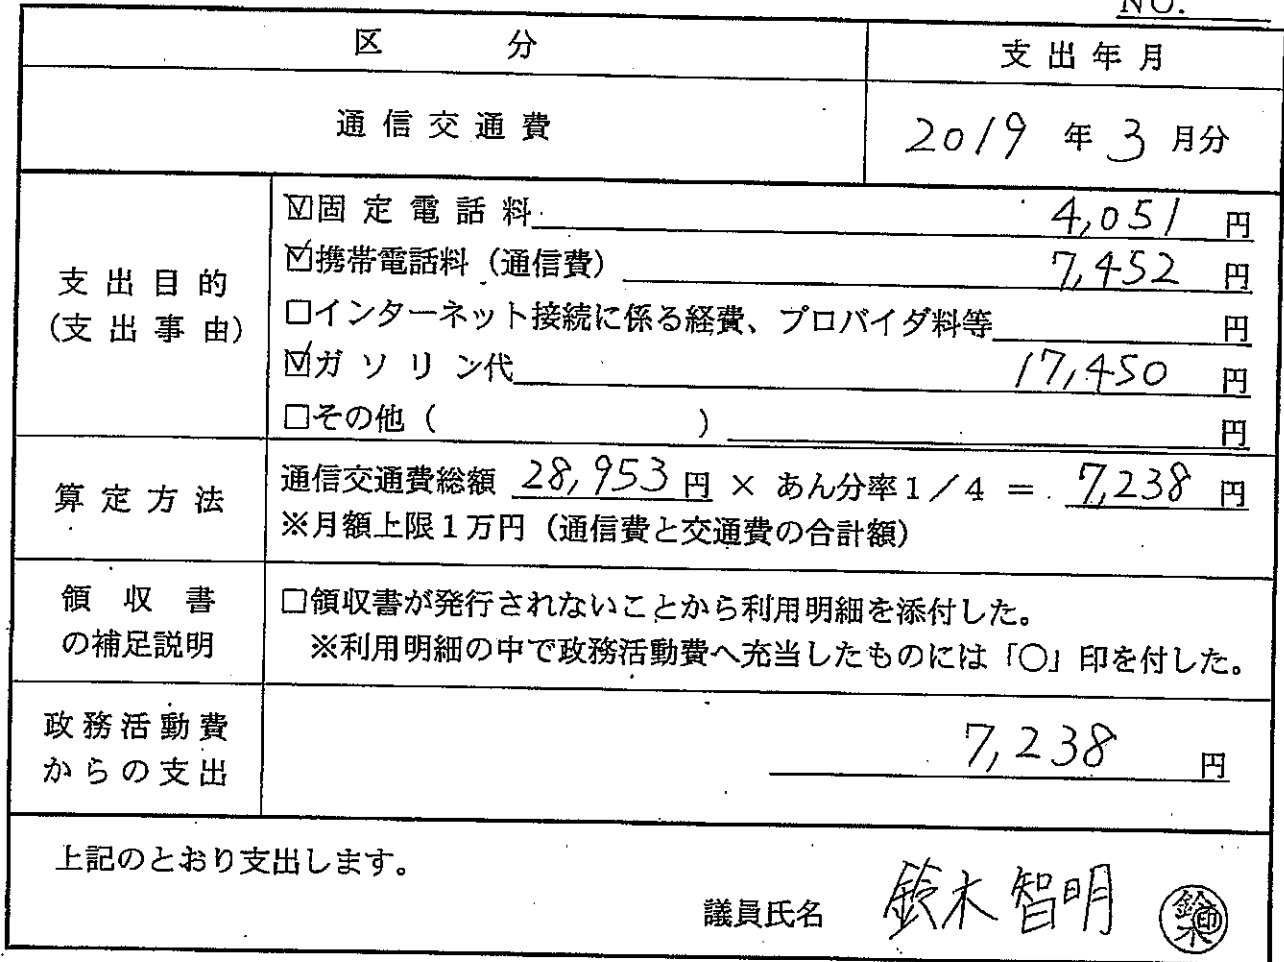 NO.
区 分 支出年月
通信交通費 2019 年 3 月分
支出目的
(支出事由)
☑固定電話料 4,051 円
☑携帯電話料（通信費） 7,452 円
□インターネット接続に係る経費、プロバイダ料等 円
☑ガソリン代 17,450 円
□その他（ ） 円
算定方法
通信交通費総額 28,953 円 × あん分率1／4 = 7,238 円
※月額上限1万円（通信費と交通費の合計額）
領収書
の補足説明
□領収書が発行されないことから利用明細を添付した。
※利用明細の中で政務活動費へ充当したものには「○」印を付した。
政務活動費
からの支出
7,238 円
上記のとおり支出します。
議員氏名 鈴木智明 鈴木印